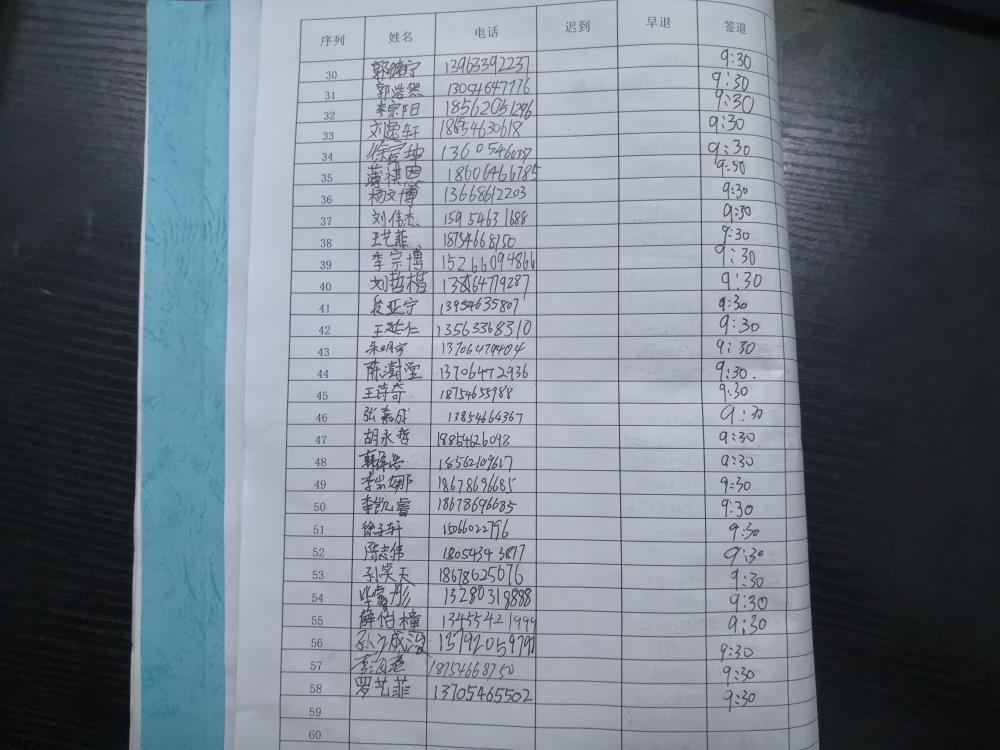 序列 姓名 电话 迟到 早退 签退
30 郭 宁 13963392237 9:30
31 郭浩然 13054647776 9:30
32 李宗阳 18562051296 9:30
33 刘 轩 18654630618 9:30
34 徐 坤 13605460337 9:30
35 薄祺恩 18606466785 9:30
36 杨文博 13668612203 9:30
37 刘伟杰 15954631688 9:30
38 王艺菲 18754668750 9:30
39 李宗博 15266094866 9:30
40 刘哲楷 9:30
41 段亚宁 13954635807 9:30
42 王延仁 13563368310 9:30
43 朱明宇 13706479404 9:30
44 陈澍堂 13706472936 9:30.
45 王诗奇 18754655988 9:30
46 张嘉成 13854664367 9:30
47 胡永哲 9:30
48 韩泽浩 18562109617 9:30
49 李 娜 18678696685 9:30
50 李凯睿 18678696685 9:30
51 徐子轩 15066022796 9:30
52 陈志伟 18054343817 9:30
53 孙笑天 18678625676 9:30
54 13280318888 9:30
55 薛怕橦 13455421999 9:30
56 孙 成浚 9:30
57 18754668750 9:30
58 罗艺菲 13705465502 9:30
59
60